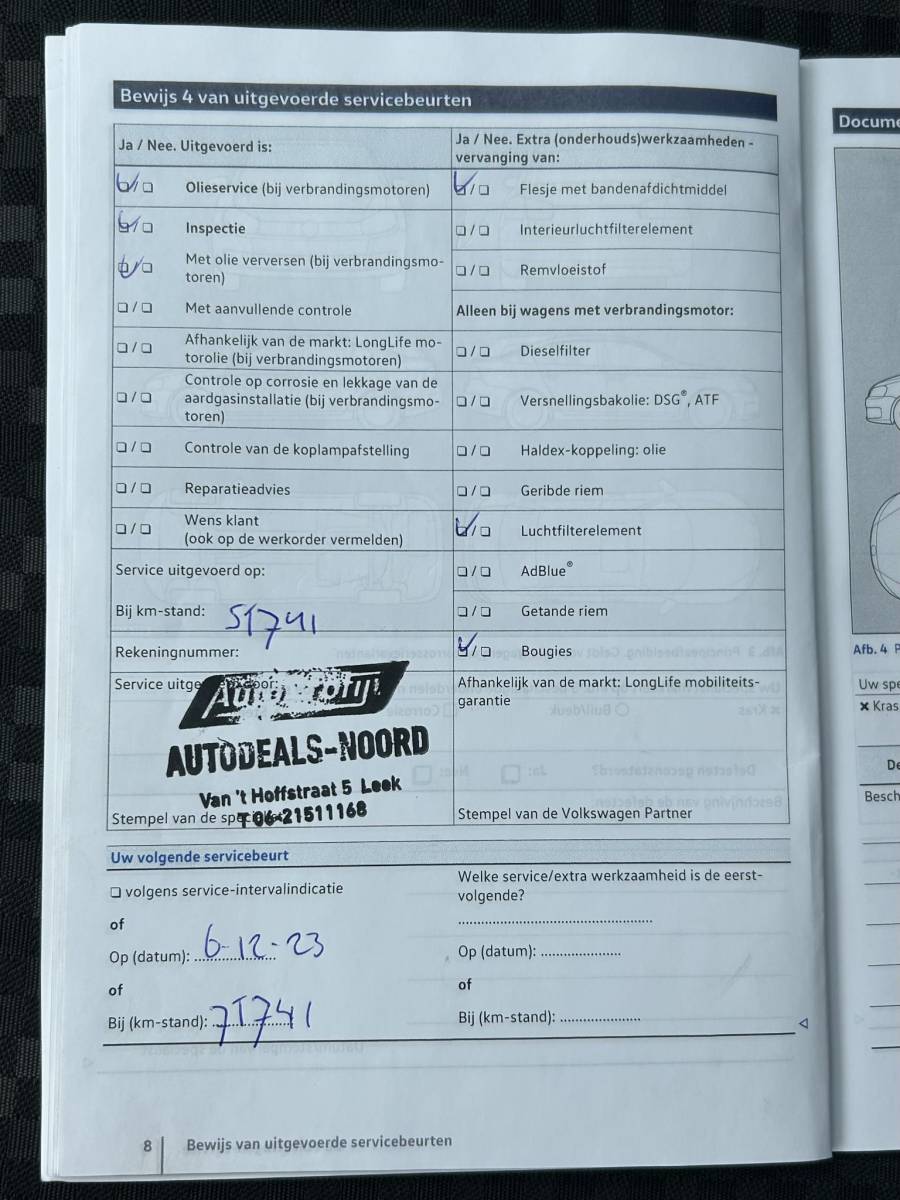 Bewijs 4 van uitgevoerde servicebeurten
Ja / Nee. Uitgevoerd is:
Olieservice (bij verbrandingsmotoren)
Inspectie
Met olie verversen (bij verbrandingsmo-
toren)
Met aanvullende controle
Afhankelijk van de markt: LongLife mo-
torolie (bij verbrandingsmotoren)
Controle op corrosie en lekkage van de
aardgasinstallatie (bij verbrandingsmo-
toren)
Controle van de koplampafstelling
Reparatieadvies
Wens klant
(ook op de werkorder vermelden)
Service uitgevoerd op:
Bij km-stand: 51741
Rekeningnummer:
Service
AUTODEALS-NOORD
Van 't Hoffstraat 5 Leek
T 06-21511168
Stempel van de
Ja / Nee. Extra (onderhouds)werkzaamheden -
vervanging van:
Flesje met bandenafdichtmiddel
Interieurluchtfilterelement
Remvloeistof
Alleen bij wagens met verbrandingsmotor:
Dieselfilter
Versnellingsbakolie: DSG®, ATF
Haldex-koppeling: olie
Geribde riem
Luchtfilterelement
AdBlue®
Getande riem
Bougies
Afhankelijk van de markt: LongLife mobiliteits-
garantie
Stempel van de Volkswagen Partner
Uw volgende servicebeurt
volgens service-intervalindicatie
of
Op (datum): 6-12-23
of
Bij (km-stand): 71741
Welke service/extra werkzaamheid is de eerst-
volgende?
Op (datum):
of
Bij (km-stand):
8 Bewijs van uitgevoerde servicebeurten
Afb. 4